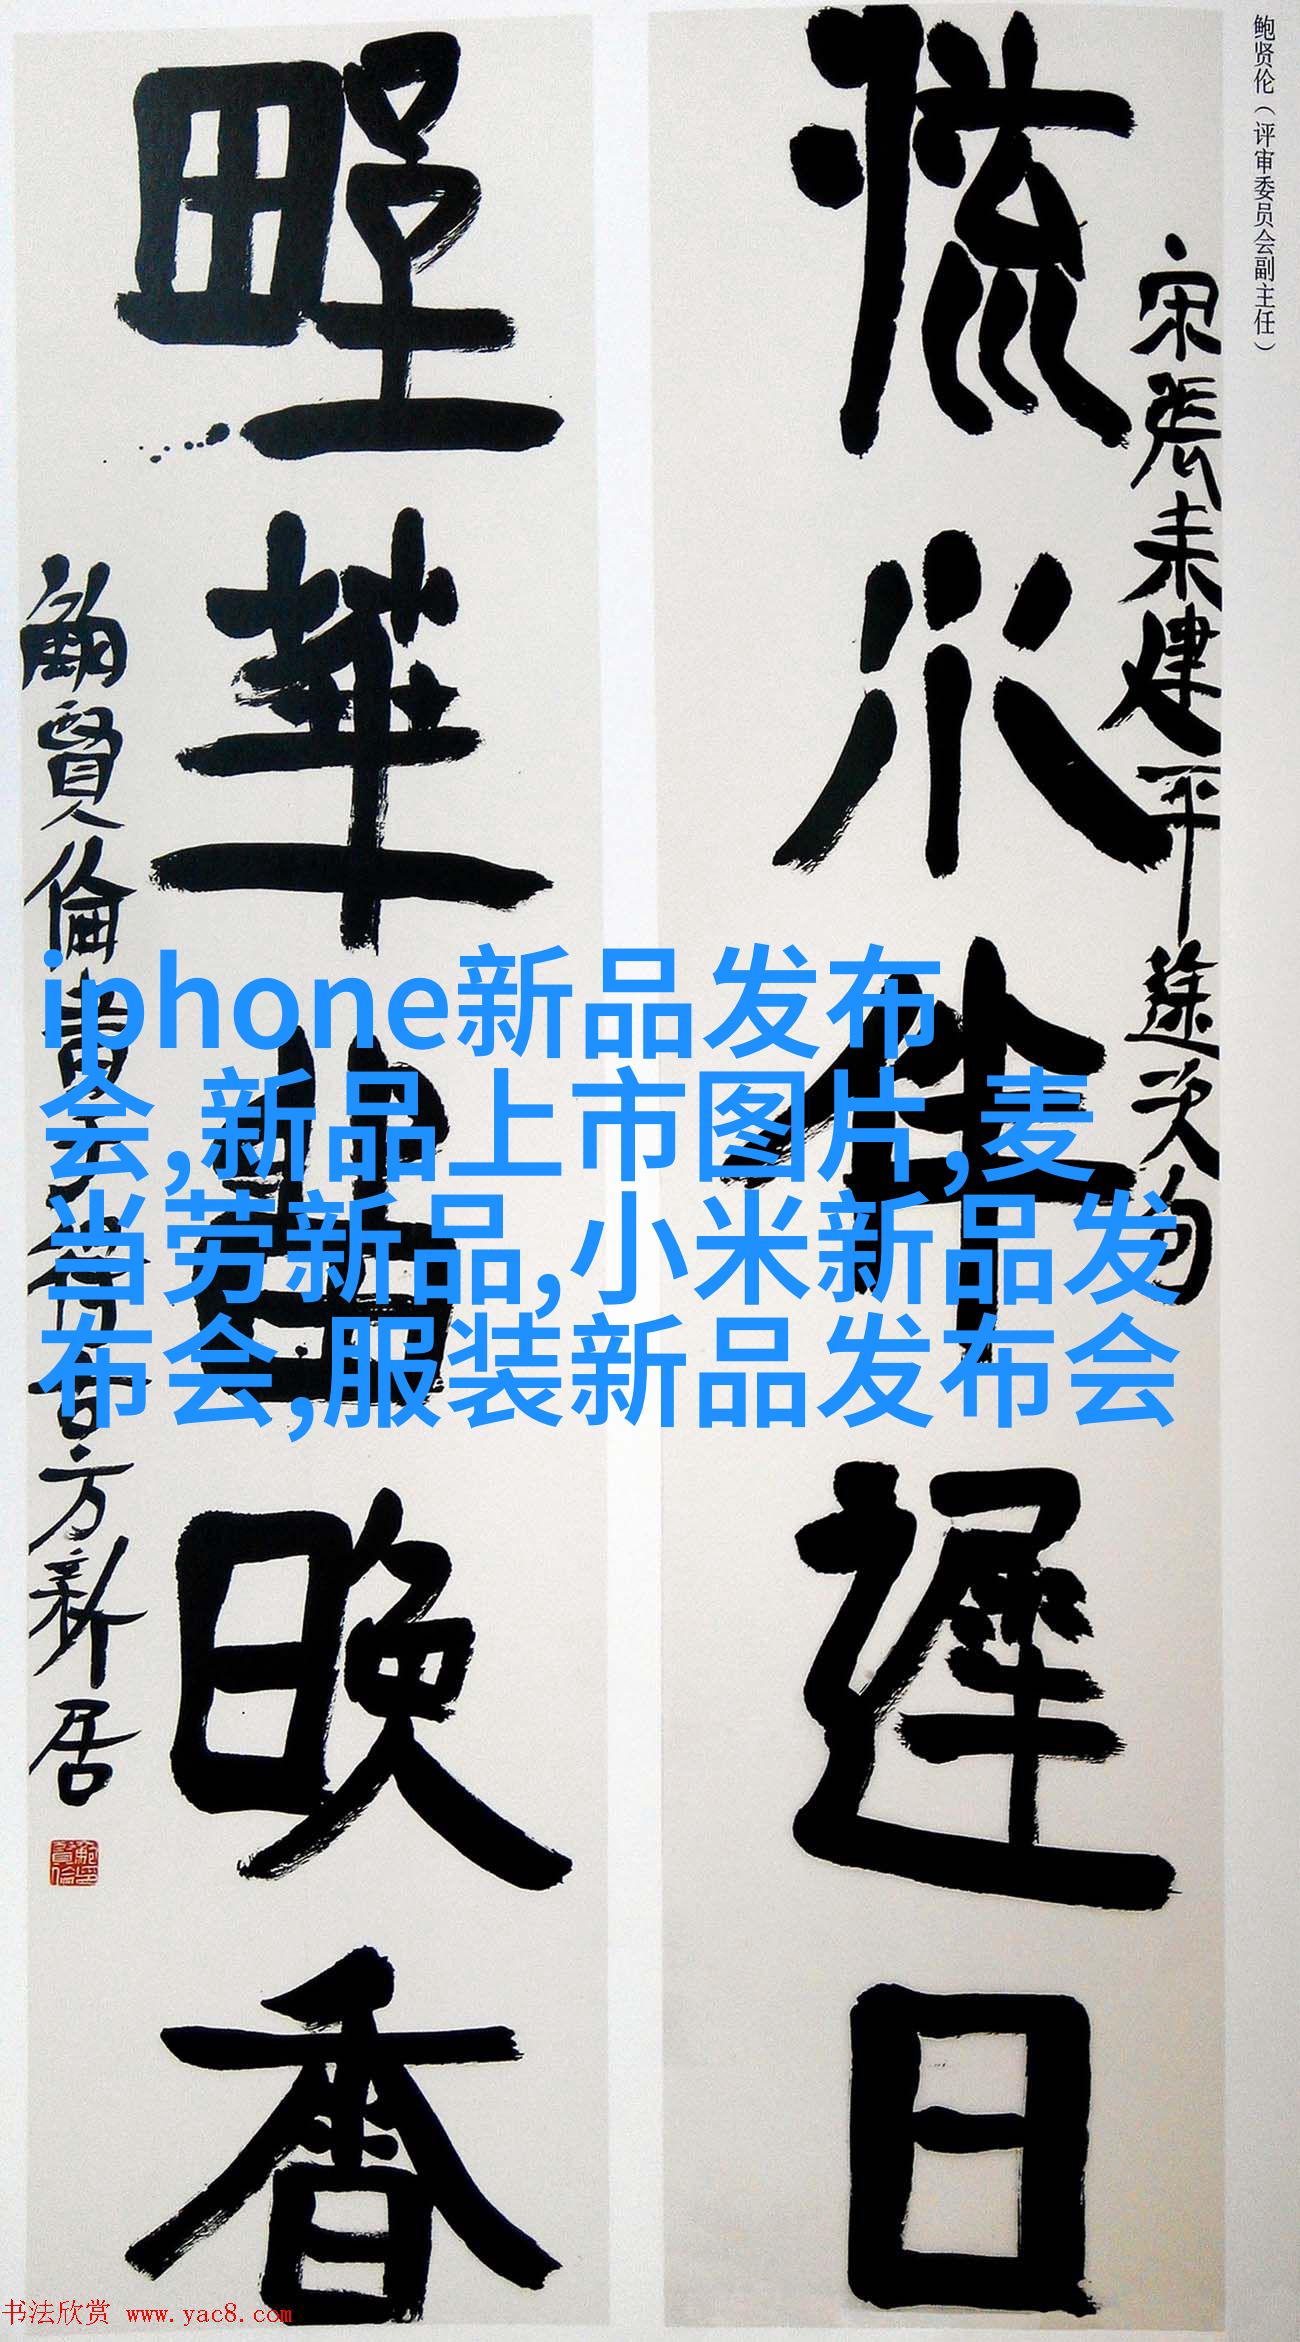 鲍贤伦（评审委员会副主任）
宋張耒建平途次句
流水伴遲日
野華晚香
鮑賢倫書于方新居
iphone新品发布
会,新品上市图片,麦
当劳新品,小米新品发
布会,服装新品发布会
书法欣赏 www.yac8.com